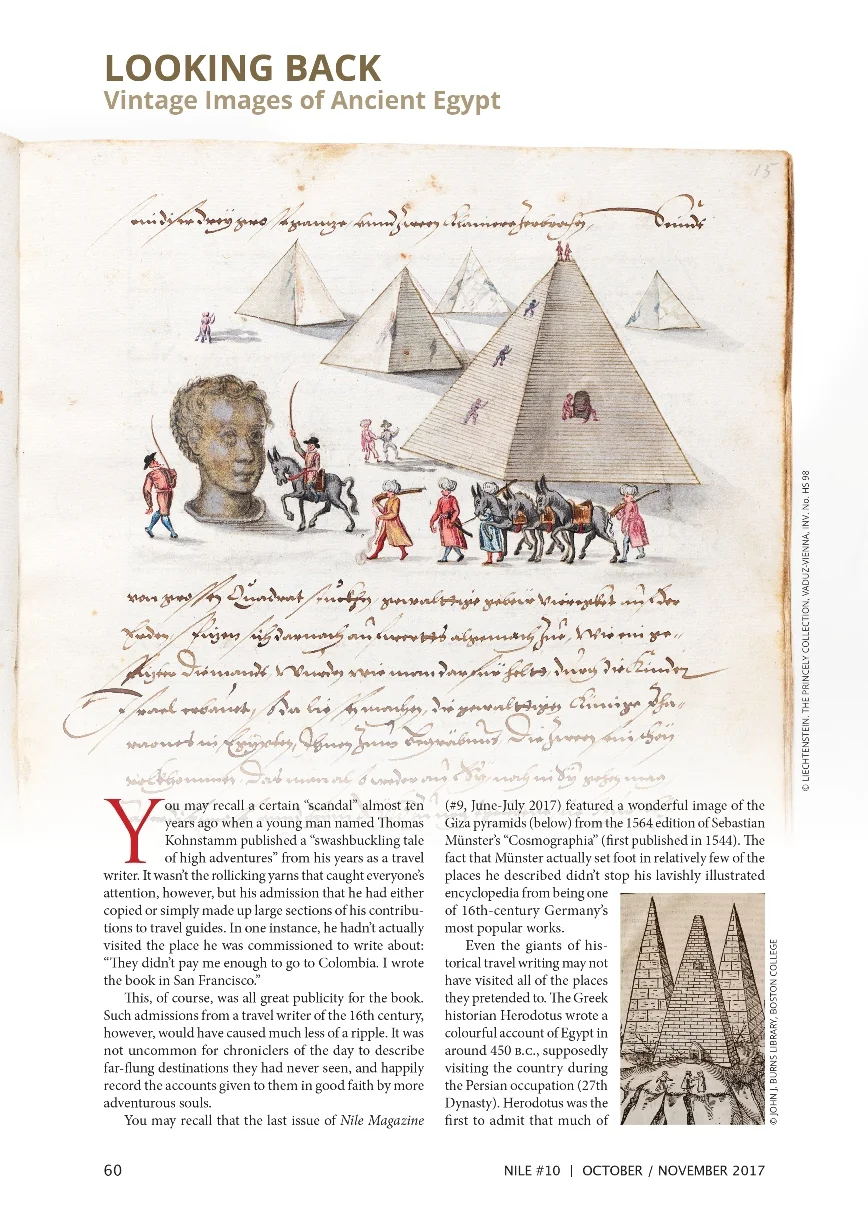 LOOKING BACK
Vintage Images of Ancient Egypt
15
von grossen Quadrat
Erden
Israel
© LIECHTENSTEIN. THE PRINCELY COLLECTION, VADUZ-VIENNA, INV. No. HS 98
You may recall a certain “scandal” almost ten
years ago when a young man named Thomas
Kohnstamm published a “swashbuckling tale
of high adventures” from his years as a travel
writer. It wasn’t the rollicking yarns that caught everyone’s
attention, however, but his admission that he had either
copied or simply made up large sections of his contribu-
tions to travel guides. In one instance, he hadn’t actually
visited the place he was commissioned to write about:
“They didn’t pay me enough to go to Colombia. I wrote
the book in San Francisco.”
This, of course, was all great publicity for the book.
Such admissions from a travel writer of the 16th century,
however, would have caused much less of a ripple. It was
not uncommon for chroniclers of the day to describe
far-flung destinations they had never seen, and happily
record the accounts given to them in good faith by more
adventurous souls.
You may recall that the last issue of Nile Magazine
(#9, June-July 2017) featured a wonderful image of the
Giza pyramids (below) from the 1564 edition of Sebastian
Münster’s “Cosmographia” (first published in 1544). The
fact that Münster actually set foot in relatively few of the
places he described didn’t stop his lavishly illustrated
encyclopedia from being one
of 16th-century Germany’s
most popular works.
Even the giants of his-
torical travel writing may not
have visited all of the places
they pretended to. The Greek
historian Herodotus wrote a
colourful account of Egypt in
around 450 B.C., supposedly
visiting the country during
the Persian occupation (27th
Dynasty). Herodotus was the
first to admit that much of
© JOHN J. BURNS LIBRARY, BOSTON COLLEGE
60
NILE #10 | OCTOBER / NOVEMBER 2017